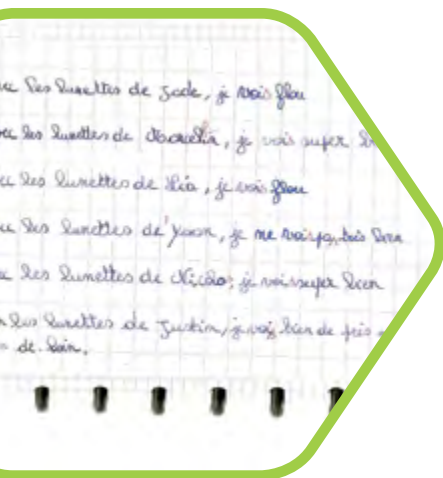 les lunettes de Jade, je vois flou
les lunettes de je vois super
les lunettes de Léa, je vois flou
les lunettes de Yoan, je ne vois pas très bien
les lunettes de Nicolas, je vois super bien
les lunettes de Justin, je vois bien de près
de loin.